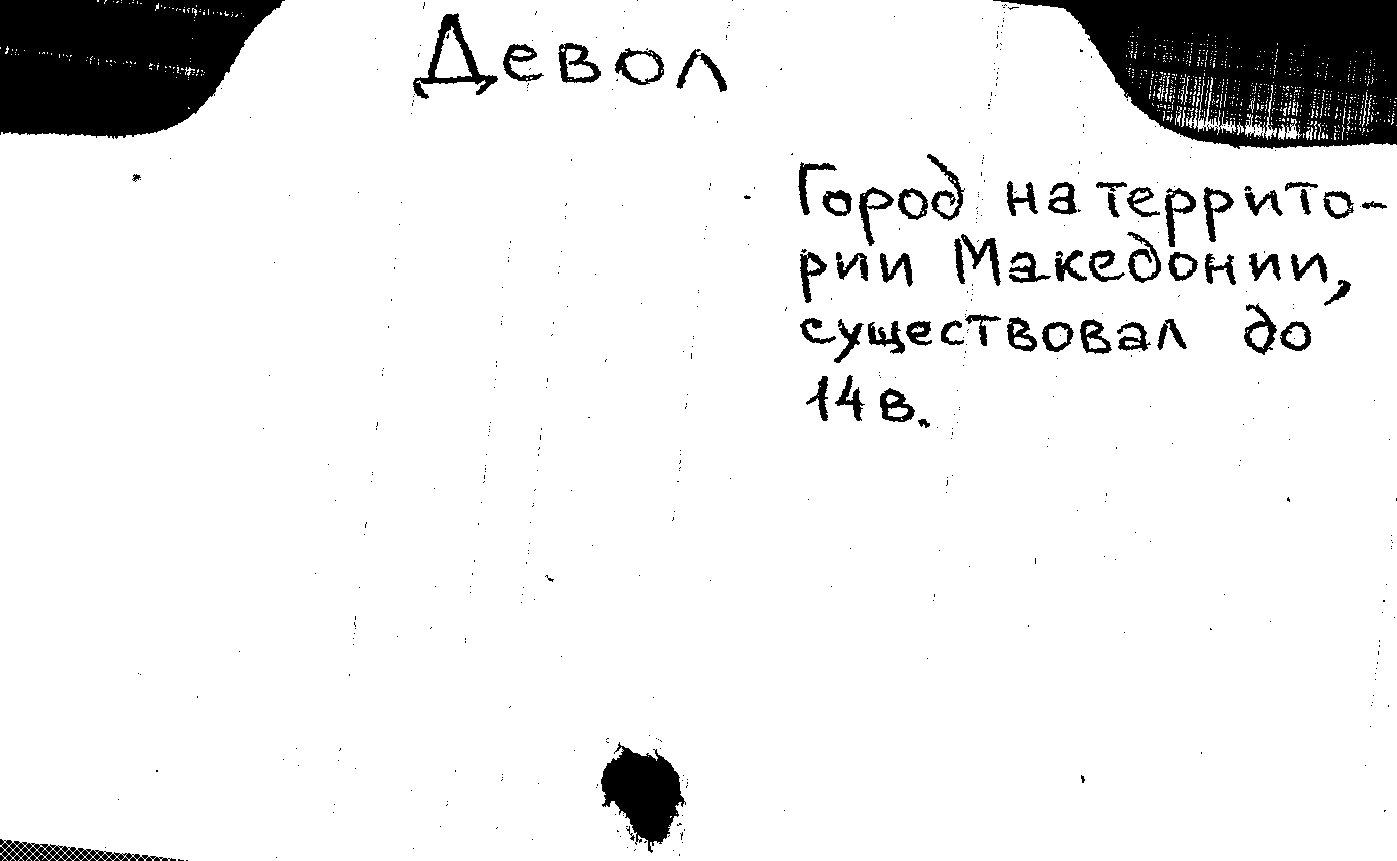 Девол
Город на террито-
рии Македонии,
существовал до
14 в.